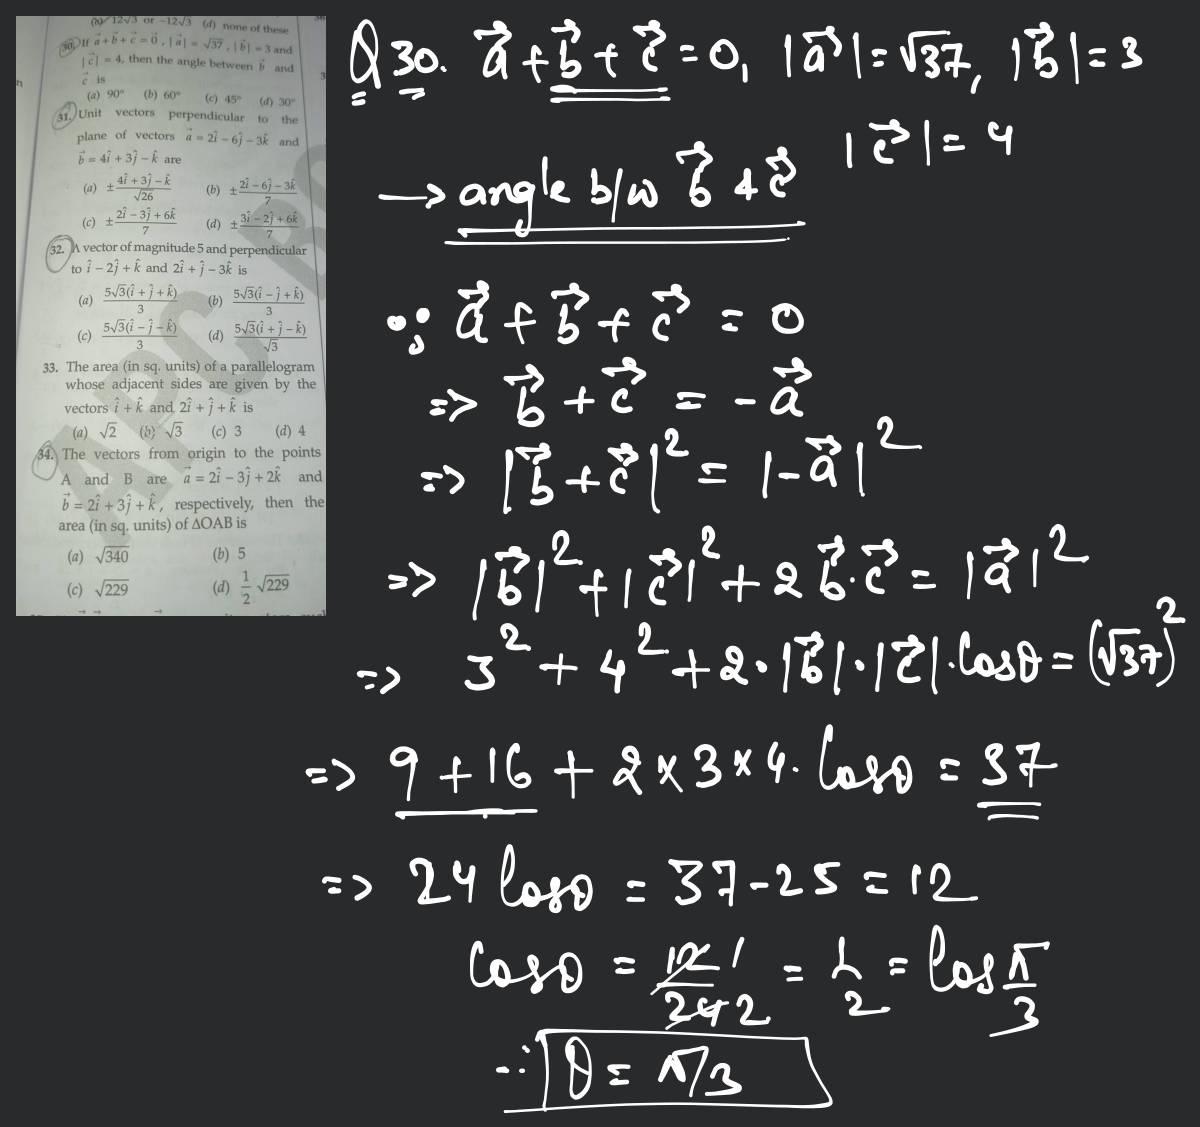 (b) 12√3 or −12√3 (d) none of these
30. If a⃗ + b⃗ + c⃗ = 0⃗, |a⃗| = √37, |b⃗| = 3 and
|c⃗| = 4, then the angle between b⃗ and
c⃗ is
(a) 90° (b) 60° (c) 45° (d) 30°
31. Unit vectors perpendicular to the
plane of vectors a⃗ = 2î − 6ĵ − 3k̂ and
b⃗ = 4î + 3ĵ − k̂ are
(a) ± (4î + 3ĵ − k̂)/√26 (b) ± (2î − 6ĵ − 3k̂)/7
(c) ± (2î − 3ĵ + 6k̂)/7 (d) ± (3î − 2ĵ + 6k̂)/7
32. A vector of magnitude 5 and perpendicular
to î − 2ĵ + k̂ and 2î + ĵ − 3k̂ is
(a) 5√3(î + ĵ + k̂)/3 (b) 5√3(î − ĵ + k̂)/3
(c) 5√3(î − ĵ − k̂)/3 (d) 5√3(î + ĵ − k̂)/√3
33. The area (in sq. units) of a parallelogram
whose adjacent sides are given by the
vectors î + k̂ and 2î + ĵ + k̂ is
(a) √2 (b) √3 (c) 3 (d) 4
34. The vectors from origin to the points
A and B are a⃗ = 2î − 3ĵ + 2k̂ and
b⃗ = 2î + 3ĵ + k̂, respectively, then the
area (in sq. units) of ΔOAB is
(a) √340 (b) 5
(c) √229 (d) 1/2 √229
Q 30. a⃗ + b⃗ + c⃗ = 0, |a⃗| = √37, |b⃗| = 3
|c⃗| = 4
→ angle b/w b⃗ & c⃗
∵ a⃗ + b⃗ + c⃗ = 0
=> b⃗ + c⃗ = -a⃗
=> |b⃗ + c⃗|² = |-a⃗|²
=> |b⃗|² + |c⃗|² + 2 b⃗·c⃗ = |a⃗|²
=> 3² + 4² + 2·|b⃗|·|c⃗|·Cosθ = (√37)²
=> 9 + 16 + 2×3×4·Cosθ = 37
=> 24 Cosθ = 37-25 = 12
Cosθ = 12/24 1/2 = 1/2 = Cos π/3
∴ θ = π/3